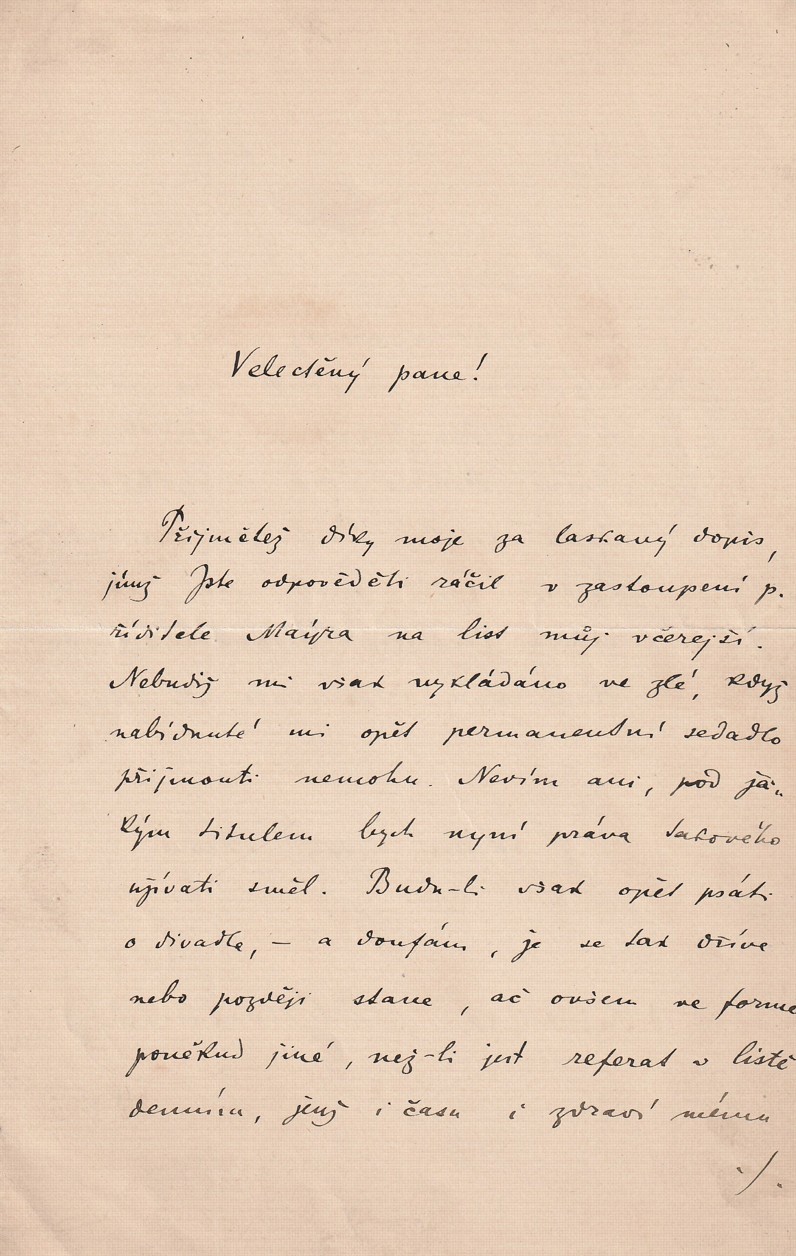 Velectěný pane!
Přijmětež díky moje za laskavý dopis,
jímž Jste odpověděti ráčil v zastoupení p.
řiditele Maýra na list můj včerejší.
Nebudiž mi však vykládáno ve zlé, když
nabídnuté mi opět permanentní sedadlo
přijmouti nemohu. Nevím ani, pod ja-
kým titulem bych nyní práva takového
užívati směl. Budu-li však opět psáti
o divadle, – a doufám, že se tak dříve
nebo později stane, ač ovšem ve formě
poněkud jiné, než-li jest referat v listě
denním, jenž i času i zdraví mému
./.